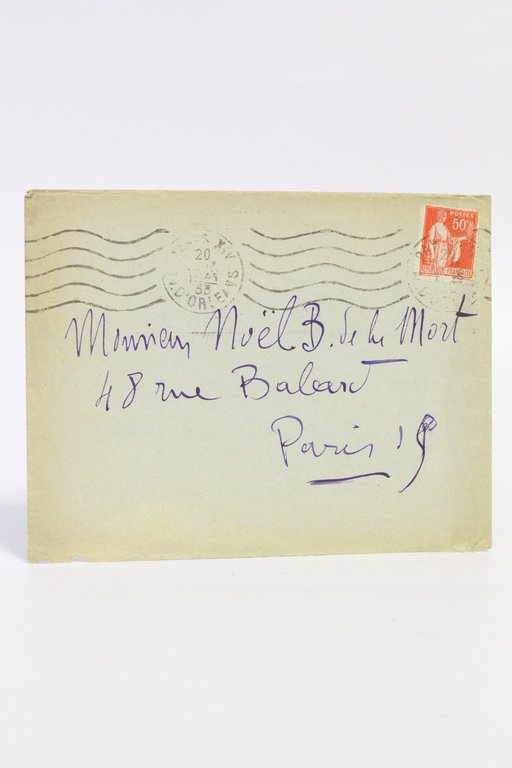 POSTES
50c
REPUBLIQUE FRANÇAISE
PARIS XIV
20
D'ORLEANS
Monsieur Noël B. de la Mort
48 rue Balard
Paris 15e